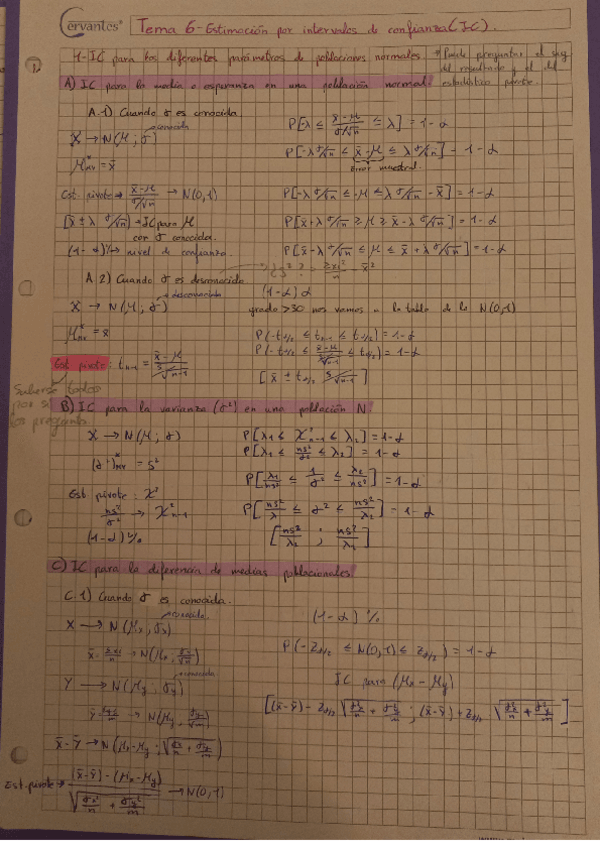 Cervantes
Tema 6-Estimación por intervalos de confianza (IC).
1-IC para los diferentes parámetros de poblaciones normales
*Puede preguntar el sig
del resultado y el del
estadístico pivote.
A) IC para la media o esperanza en una población normal.
A.1) Cuando σ es conocida
conocida
X → N(μ; σ)
μ*MV = x̄
Est. pivote → (x̄-μ)/(σ/√n) → N(0,1)
[x̄ ± λ σ/√n] → IC para μ
con σ conocida.
(1-α)% → nivel de confianza.
P[-λ ≤ (x̄-μ)/(σ/√n) ≤ λ] = 1-α
P[-λ σ/√n ≤ x̄-μ ≤ λ σ/√n] = 1-α
Error muestral
P[-λ σ/√n ≤ -μ ≤ λ σ/√n - x̄] = 1-α
P[x̄+λ σ/√n ≥ μ ≥ x̄-λ σ/√n] = 1-α
P[x̄-λ σ/√n ≤ μ ≤ x̄+λ σ/√n] = 1-α
A.2) Cuando σ es desconocida
desconocida
X → N(μ; σ)
μ*MV = x̄
Est pivote: t n-1 = (x̄-μ)/(s/√n-1)
(1-α) α
grado >30 nos vamos a la tabla de la N(0,1)
P(-tα/2 ≤ tn-1 ≤ tα/2) = 1-α
P(-tα/2 ≤ (x̄-μ)/(s/√n-1) ≤ tα/2) = 1-α
[x̄ ± tα/2 s/√n-1]
Saberse todos
por si
los pregunta
B) IC para la varianza (σ²) en una población N.
X → N(μ; σ)
(σ²)*MV = s²
Est pivote: χ²
ns²/σ² → χ²n-1
(1-α)%
P[λ1 ≤ χ²n-1 ≤ λ2] = 1-α
P[λ1 ≤ ns²/σ² ≤ λ2] = 1-α
P[λ1/ns² ≤ 1/σ² ≤ λ2/ns²] = 1-α
P[ns²/λ ≤ σ² ≤ ns²/λ1] = 1-α
[ns²/λ2 ; ns²/λ1]
C) IC para la diferencia de medias poblacionales
C.1) Cuando σ es conocida.
conocida
X → N(μx; σx)
x̄ = Σxi/n → N(μx, σx/√n)
conocida
Y → N(μy; σy)
→ N(μy, σy/√m)
x̄-ȳ → N(μx-μy; √(σ²x/n + σ²y/m))
Est. pivote → ((x̄-ȳ)-(μx-μy))/√(σx²/n + σy²/m) → N(0,1)
(1-α)%
P(-Zα/2 ≤ N(0,1) ≤ Zα/2) = 1-α
IC para (μx-μy)
[(x̄-ȳ)-Zα/2 √(σ²x/n + σ²y/m) ; (x̄-ȳ)+Zα/2 √(σ²x/n + σ²y/m)]